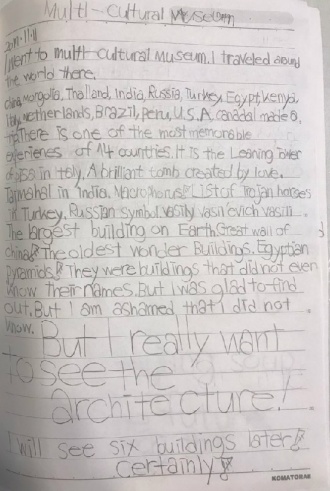 Multi-Cultural Museum
I went to multi-cultural Museum. I traveled around
the world there.
china, Mongolia, Thailand, India, Russia, Turkey, Egypt, Kenya,
Italy, Netherlands, Brazil, peru, U.S.A, canada
There is one of the most memorable
experiences of 14 countries. It is the Leaning Tower
of pisa in Italy, A brilliant tomb created by love.
Tajmahal in India, List of Trojan horses
in Turkey, Russian symbol vasily
The largest building on Earth, Great wall of
china! The oldest wonder Buildings. Egyptian
pyramids! They were buildings that did not even
know their names. But I was glad to find
out. But I am ashamed that I did not
know.
But I really want
to see the
architecture!
I will see six buildings later!
certainly!
KOMATOBAE